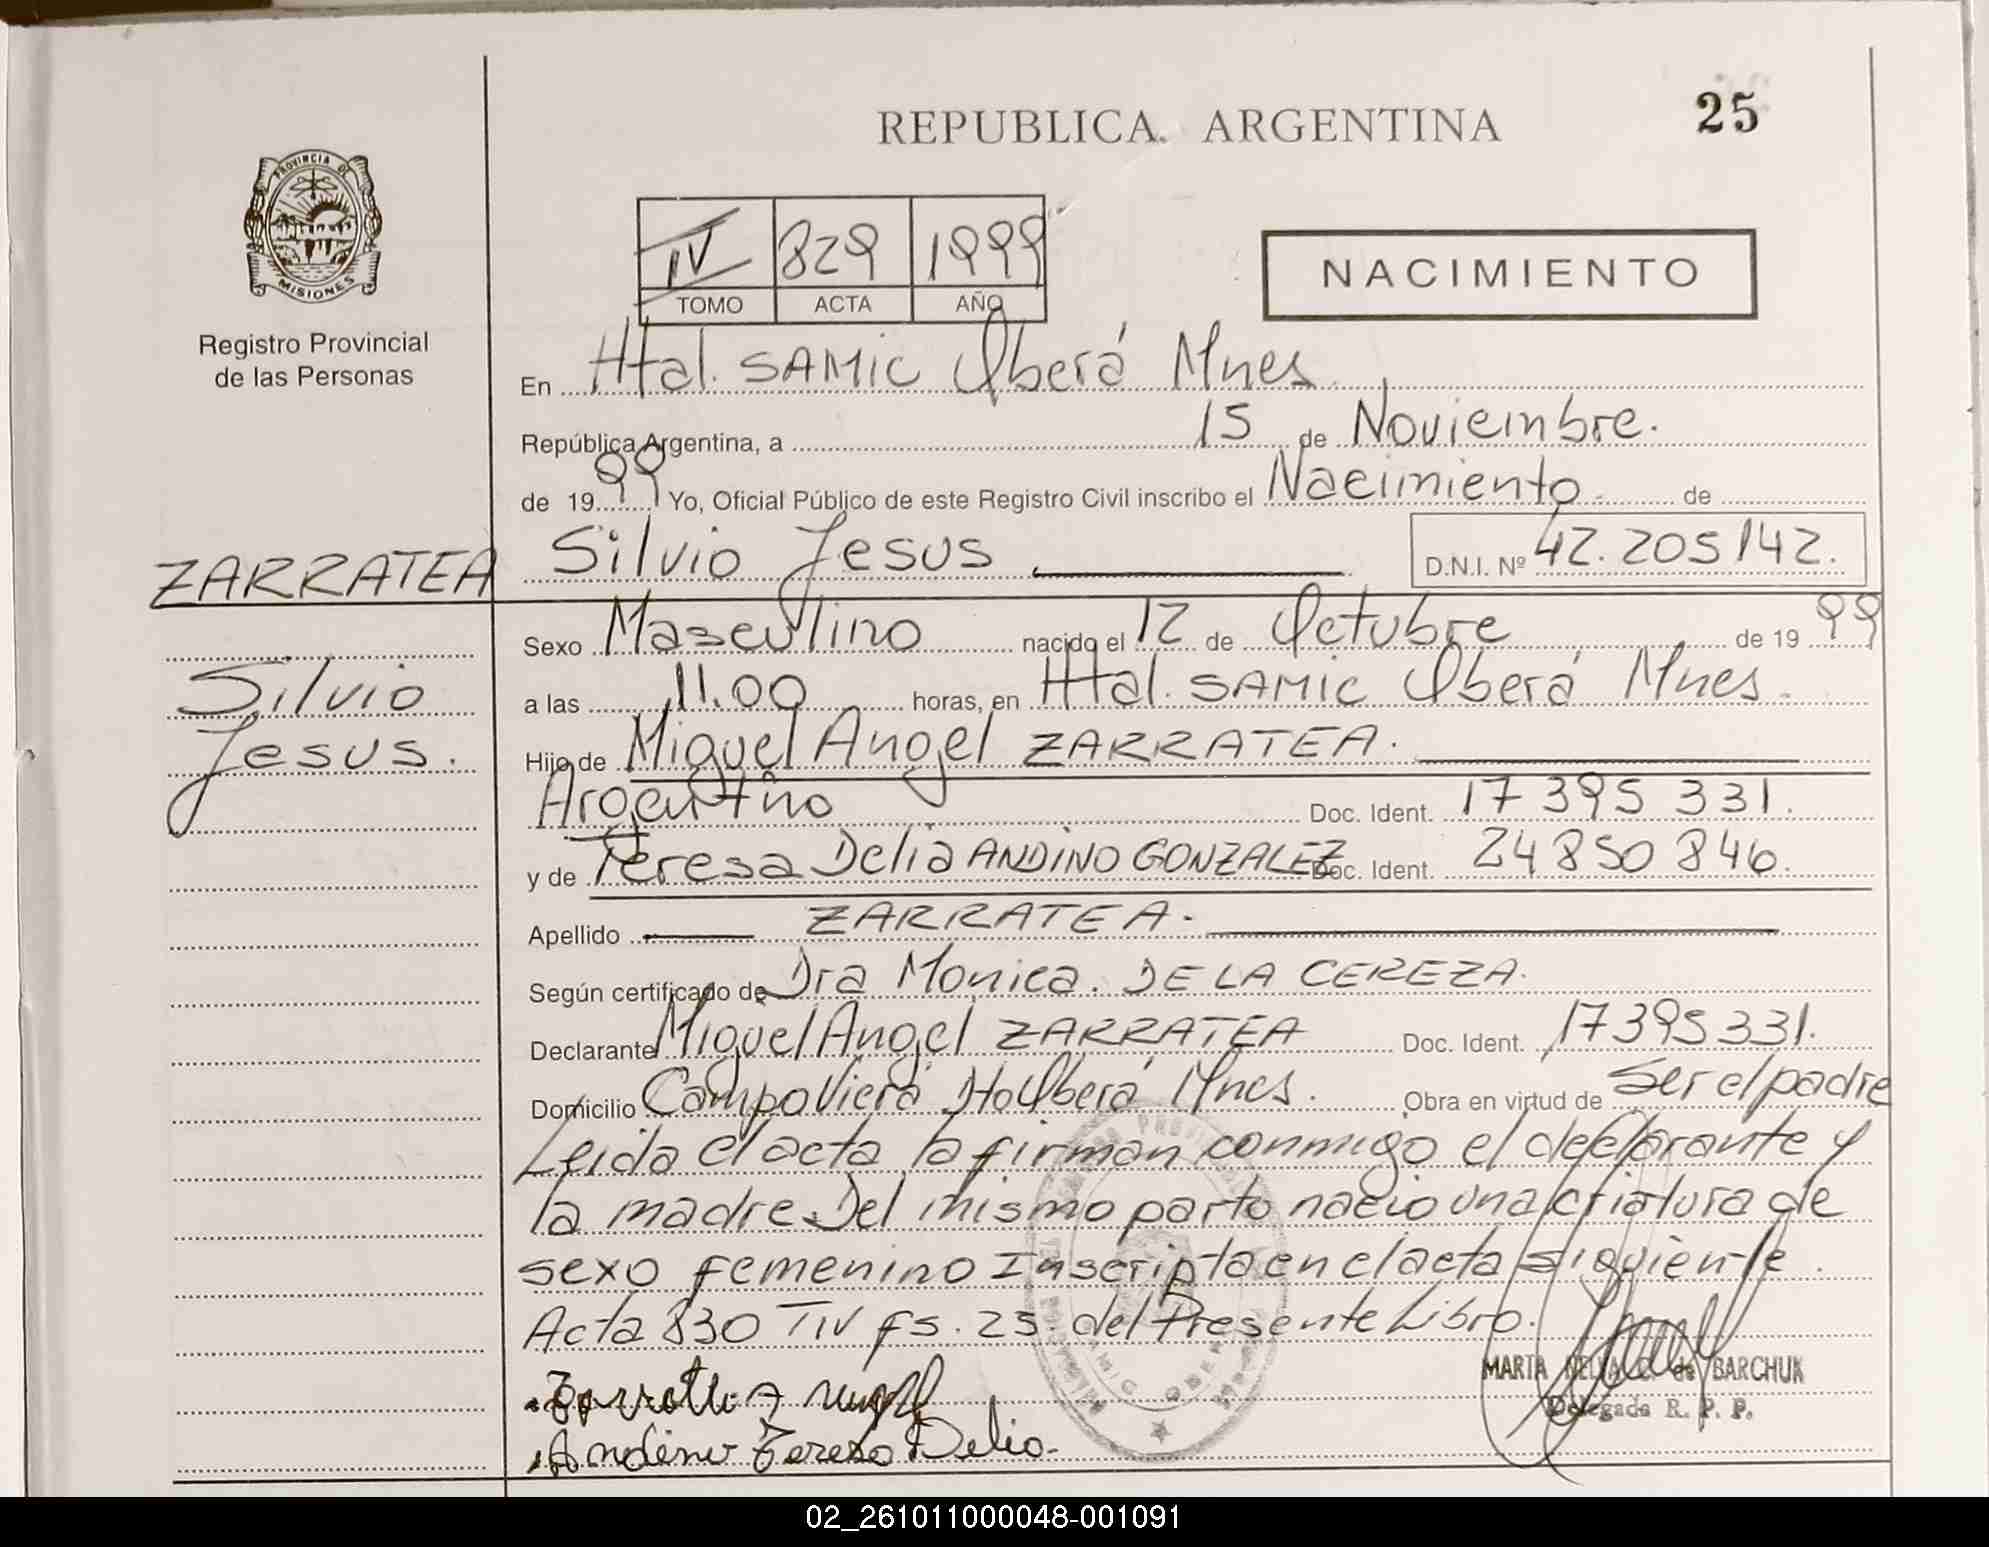 25
REPUBLICA. ARGENTINA
PROVINCIA DE
MISIONES
Registro Provincial
de las Personas
IV 829 1999
TOMO ACTA AÑO
NACIMIENTO
En Htal. SAMIC Oberá Mnes.
República Argentina, a 15 de Noviembre.
de 1999 Yo, Oficial Público de este Registro Civil inscribo el Nacimiento de
ZARRATEA Silvio Jesus D.N.I. Nº 42.205142.
Sexo Masculino nacido el 12 de Octubre de 1999
Silvio
Jesus.
a las 11.00 horas, en Htal. SAMIC Oberá Mnes.
Hijo de Miguel Angel ZARRATEA.
Argentino Doc. Ident. 17 395 331.
y de Teresa Delia ANDINO GONZALEZ Doc. Ident. 24 850 846.
Apellido ZARRATEA.
Según certificado de Dra Monica. DE LA CEREZA.
Declarante Miguel Angel ZARRATEA Doc. Ident. 17395331.
Domicilio Campo Viera Oberá Mnes. Obra en virtud de Ser el padre
Leida el acta la firman conmigo el declarante y
la madre. Del mismo parto nacio una criatura de
sexo femenino Inscripta en el acta siguiente.
Acta 830 TIV fs. 25. del Presente Libro.
MARTA de BARCHUK
Delegada R. P. P.
Andino Tereso Delio.
02_261011000048-001091